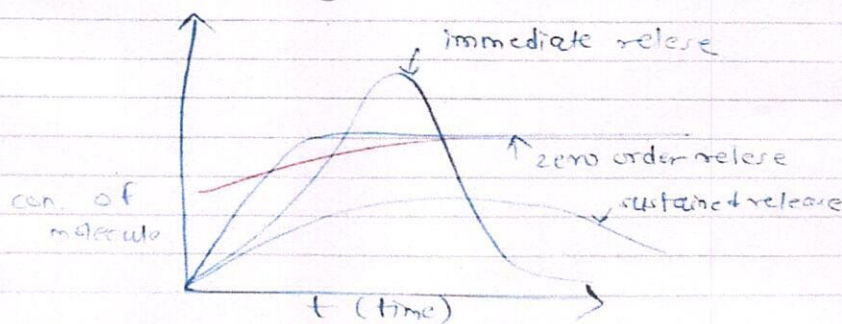 immediate relese
zero order relese
sustained release
con. of
molecule
t (time)